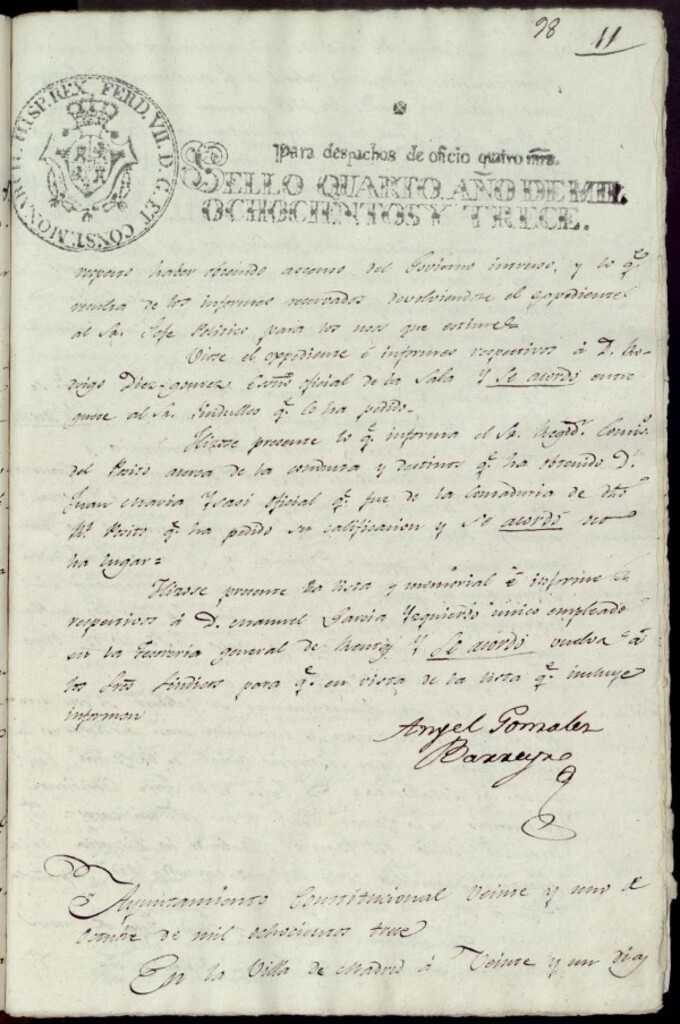 98 11
HISP. REX. FERD. VII. D. G. ET CONST. MONARCH.
Para despachos de oficio quatro mrs.
SELLO QUARTO. AÑO DE MIL
OCHOCIENTOS Y TRECE.
haber obtenido ascenso del Govierno intruso, y lo q.e
resulta de los informes reservados devolviendose el expediente
al Sr. Jefe Politico para los usos que estime
Viose el expediente é informes respectivos á D. Ro-
drigo Diez gomez Escno oficial de la Sala Y Se acordó entre
guese al Sr. q.e lo ha pedido.
Hizose presente lo q.e informa el Sr. Regid.r Comiso.
del Posito acerca de la conducta y destinos q.e ha obtenido D.
Juan Maria Ycasi oficial q.e fue de la Contaduria de dho
Rl. Posito q.e ha pedido su calificacion y Se acordó no
ha lugar=
Hizose presente la lista y memorial é informe
respectivos á D. Manuel Garcia Yzquierdo unico empleado
en la tesoreria general de Y Se acordó vuelva á
los Sres Sindicos para q.e en vista de la lista q.e incluye
informen
Angel Gonzalez
Barreyro
Ayuntamiento Constitucional Veinte y uno de
Octubre de mil ochocientos trece
En la Villa de Madrid á Veinte y un dias